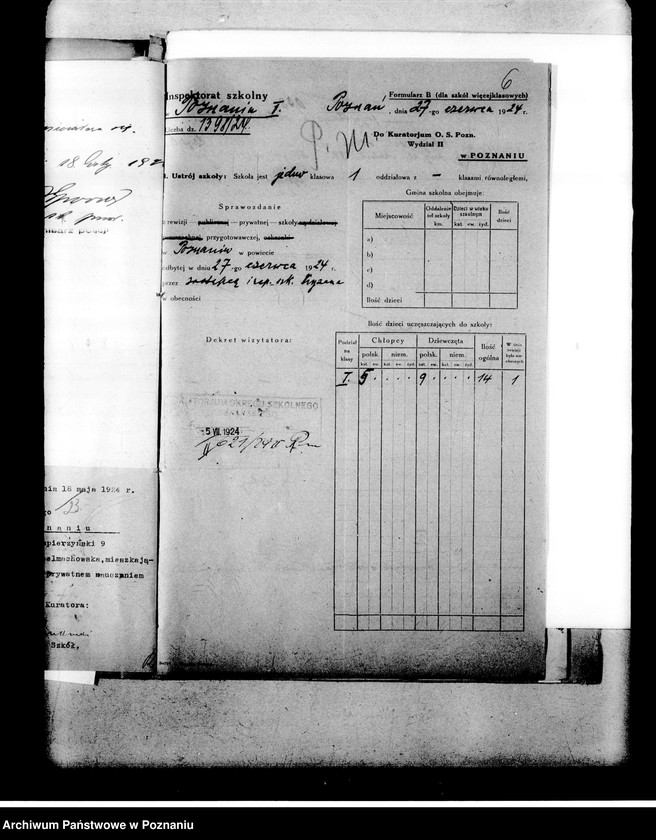 6
Inspektorat szkolny
Poznania I.
Liczba dz. 1398/24.
Formularz B (dla szkół więcejklasowych)
Poznań, dnia 27-go czerwca 1924 r.
P. M.
Do Kuratorjum O. S. Pozn.
Wydział II
w POZNANIU
I. Ustrój szkoły: Szkoła jest jedno klasowa 1 oddziałowa z – klasami równoległemi,
Gmina szkolna obejmuje:
Miejscowość
Oddalenie od szkoły km.
Dzieci w wieku szkolnym
kat. ew. żyd.
Ilość dzieci
a)
b)
c)
d)
Ilość dzieci
Sprawozdanie
z rewizji publicznej — prywatnej — szkoły
przygotowawczej,
w Poznaniu w powiecie
odbytej w dniu 27-go czerwca 1924 r.
przez zastępcę insp. szk.
w obecności
Dekret wizytatora:
Ilość dzieci uczęszczających do szkoły:
Podział na klasy
Chłopcy
Dziewczęta
Ilość ogólna
polsk. niem. polsk. niem.
kat. ew. kat. ew. żyd. kat. ew. kat. ew. żyd.
I. 5 . . . . 9 . . . . 14 1
OKRĘGU SZKOLNEGO
5 VII. 1924
18 luty 192
nia 18 maja 1924 r.
go
n a n i u
apierzyński 9
elmachowska, mieszkają-
prywatnem nauczaniem
Kuratora:
Szkół.
Archiwum Państwowe w Poznaniu